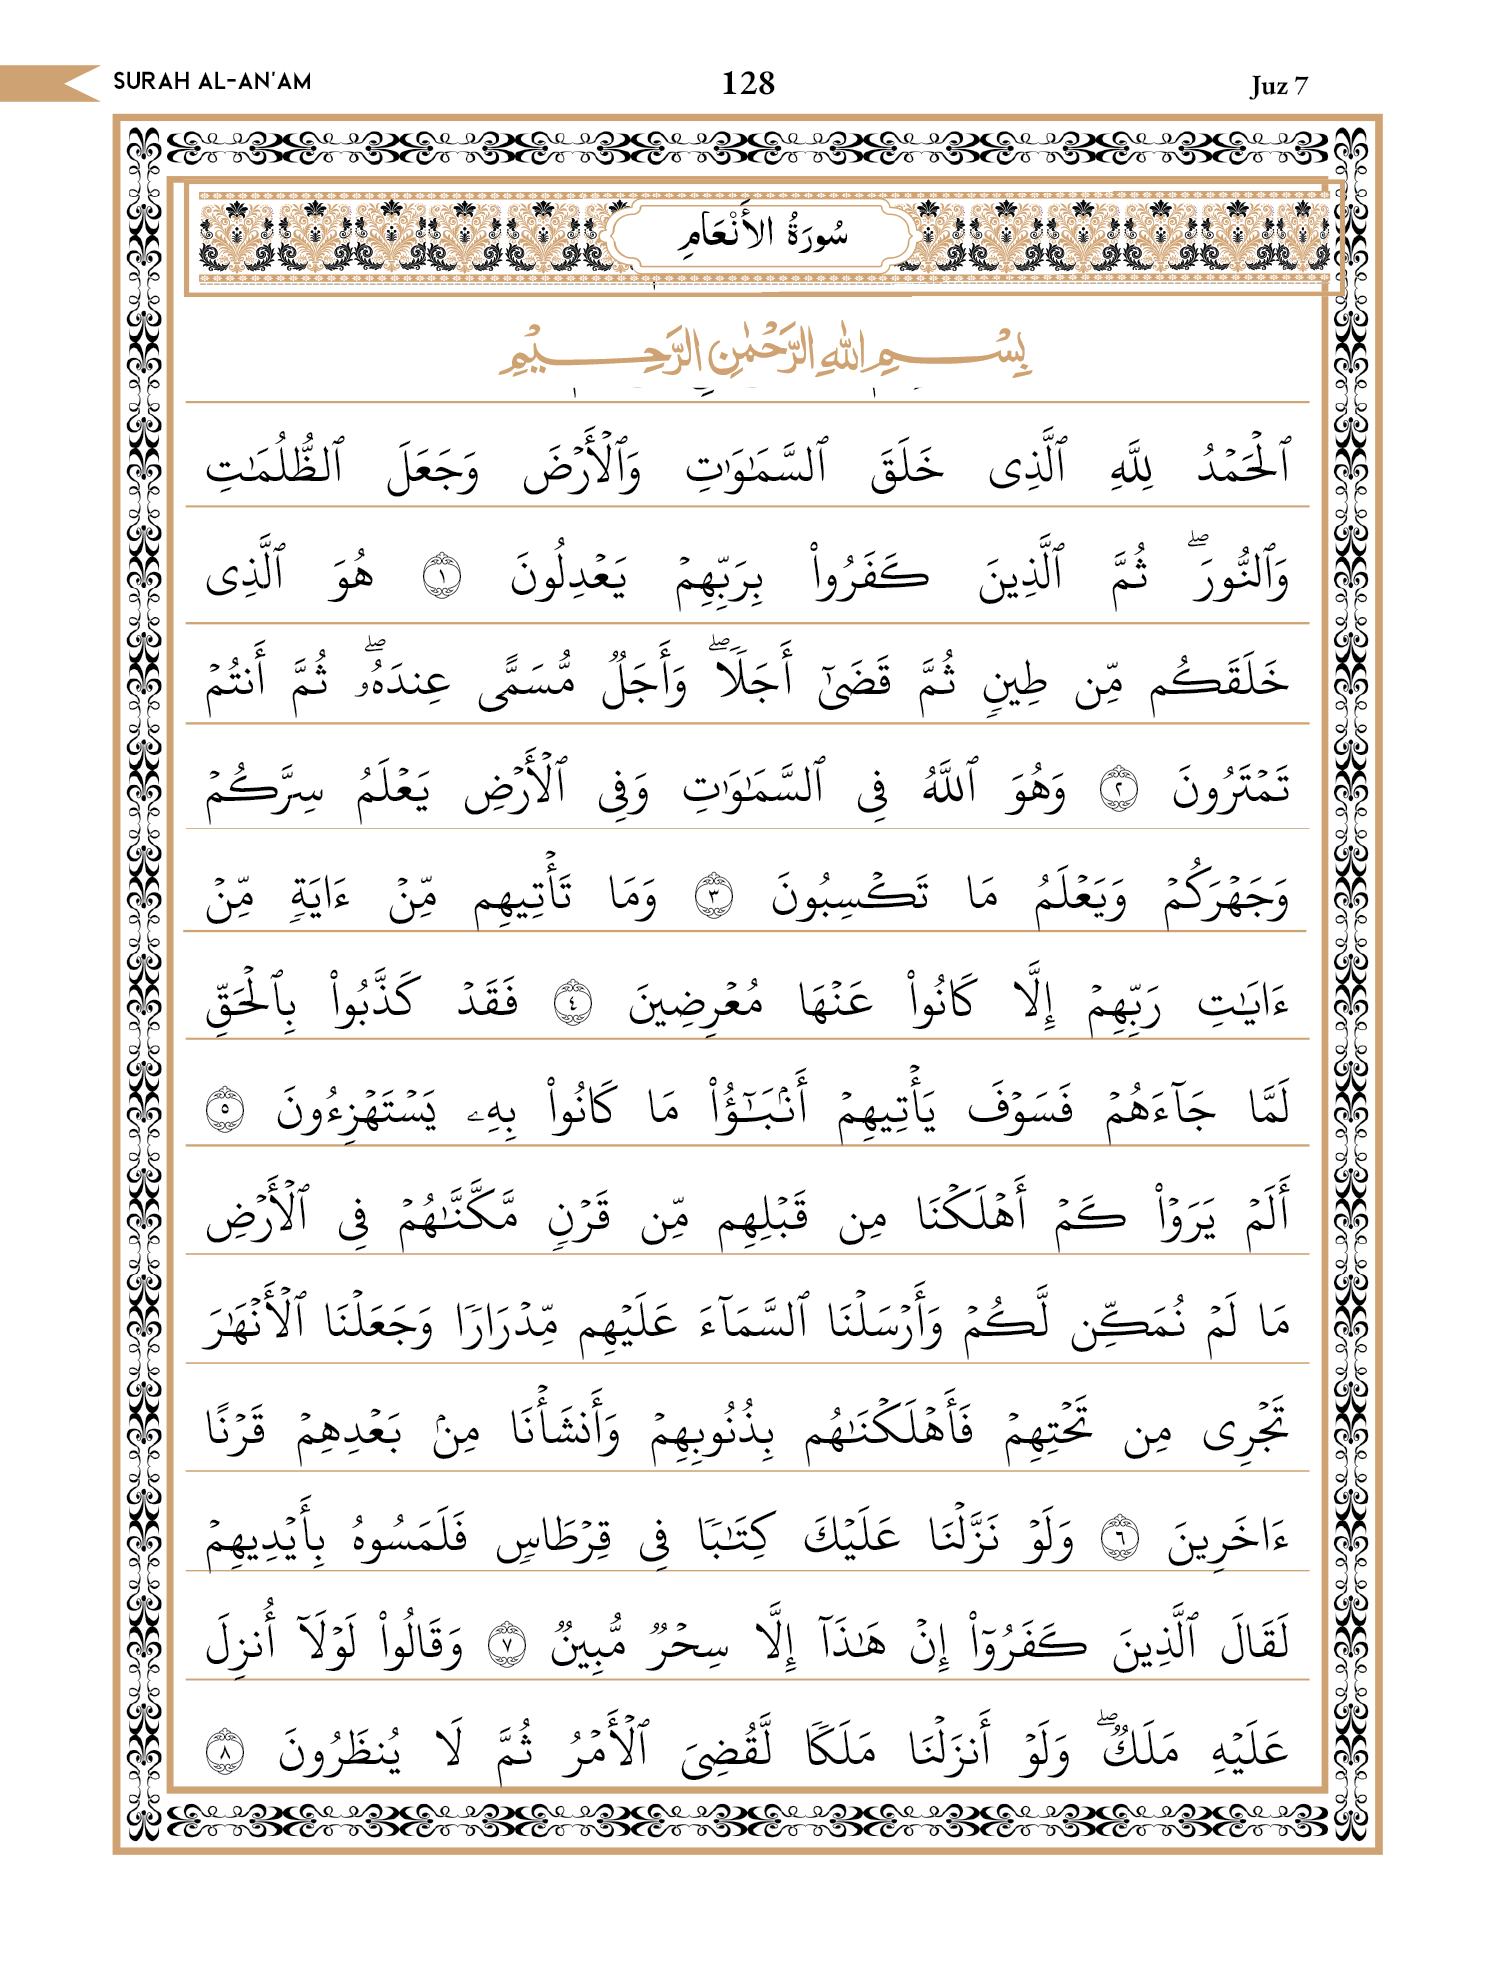 SURAH AL-AN'AM
128
Juz 7
سُورَةُ الأَنْعَامِ
بِسْمِ اللهِ الرَّحْمٰنِ الرَّحِيْمِ
ٱلْحَمْدُ لِلَّهِ ٱلَّذِى خَلَقَ ٱلسَّمَـٰوَٰتِ وَٱلْأَرْضَ وَجَعَلَ ٱلظُّلُمَـٰتِ
وَٱلنُّورَ ۖ ثُمَّ ٱلَّذِينَ كَفَرُوا۟ بِرَبِّهِمْ يَعْدِلُونَ ١ هُوَ ٱلَّذِى
خَلَقَكُم مِّن طِينٍ ثُمَّ قَضَىٰٓ أَجَلًا ۖ وَأَجَلٌ مُّسَمًّى عِندَهُۥ ۖ ثُمَّ أَنتُمْ
تَمْتَرُونَ ٢ وَهُوَ ٱللَّهُ فِى ٱلسَّمَـٰوَٰتِ وَفِى ٱلْأَرْضِ يَعْلَمُ سِرَّكُمْ
وَجَهْرَكُمْ وَيَعْلَمُ مَا تَكْسِبُونَ ٣ وَمَا تَأْتِيهِم مِّنْ ءَايَةٍ مِّنْ
ءَايَـٰتِ رَبِّهِمْ إِلَّا كَانُوا۟ عَنْهَا مُعْرِضِينَ ٤ فَقَدْ كَذَّبُوا۟ بِٱلْحَقِّ
لَمَّا جَآءَهُمْ فَسَوْفَ يَأْتِيهِمْ أَنۢبَـٰٓؤُا۟ مَا كَانُوا۟ بِهِۦ يَسْتَهْزِءُونَ ٥
أَلَمْ يَرَوْا۟ كَمْ أَهْلَكْنَا مِن قَبْلِهِم مِّن قَرْنٍ مَّكَّنَّـٰهُمْ فِى ٱلْأَرْضِ
مَا لَمْ نُمَكِّن لَّكُمْ وَأَرْسَلْنَا ٱلسَّمَآءَ عَلَيْهِم مِّدْرَارًا وَجَعَلْنَا ٱلْأَنْهَـٰرَ
تَجْرِى مِن تَحْتِهِمْ فَأَهْلَكْنَـٰهُم بِذُنُوبِهِمْ وَأَنشَأْنَا مِنۢ بَعْدِهِمْ قَرْنًا
ءَاخَرِينَ ٦ وَلَوْ نَزَّلْنَا عَلَيْكَ كِتَـٰبًا فِى قِرْطَاسٍ فَلَمَسُوهُ بِأَيْدِيهِمْ
لَقَالَ ٱلَّذِينَ كَفَرُوٓا۟ إِنْ هَـٰذَآ إِلَّا سِحْرٌ مُّبِينٌ ٧ وَقَالُوا۟ لَوْلَآ أُنزِلَ
عَلَيْهِ مَلَكٌ ۖ وَلَوْ أَنزَلْنَا مَلَكًا لَّقُضِىَ ٱلْأَمْرُ ثُمَّ لَا يُنظَرُونَ ٨